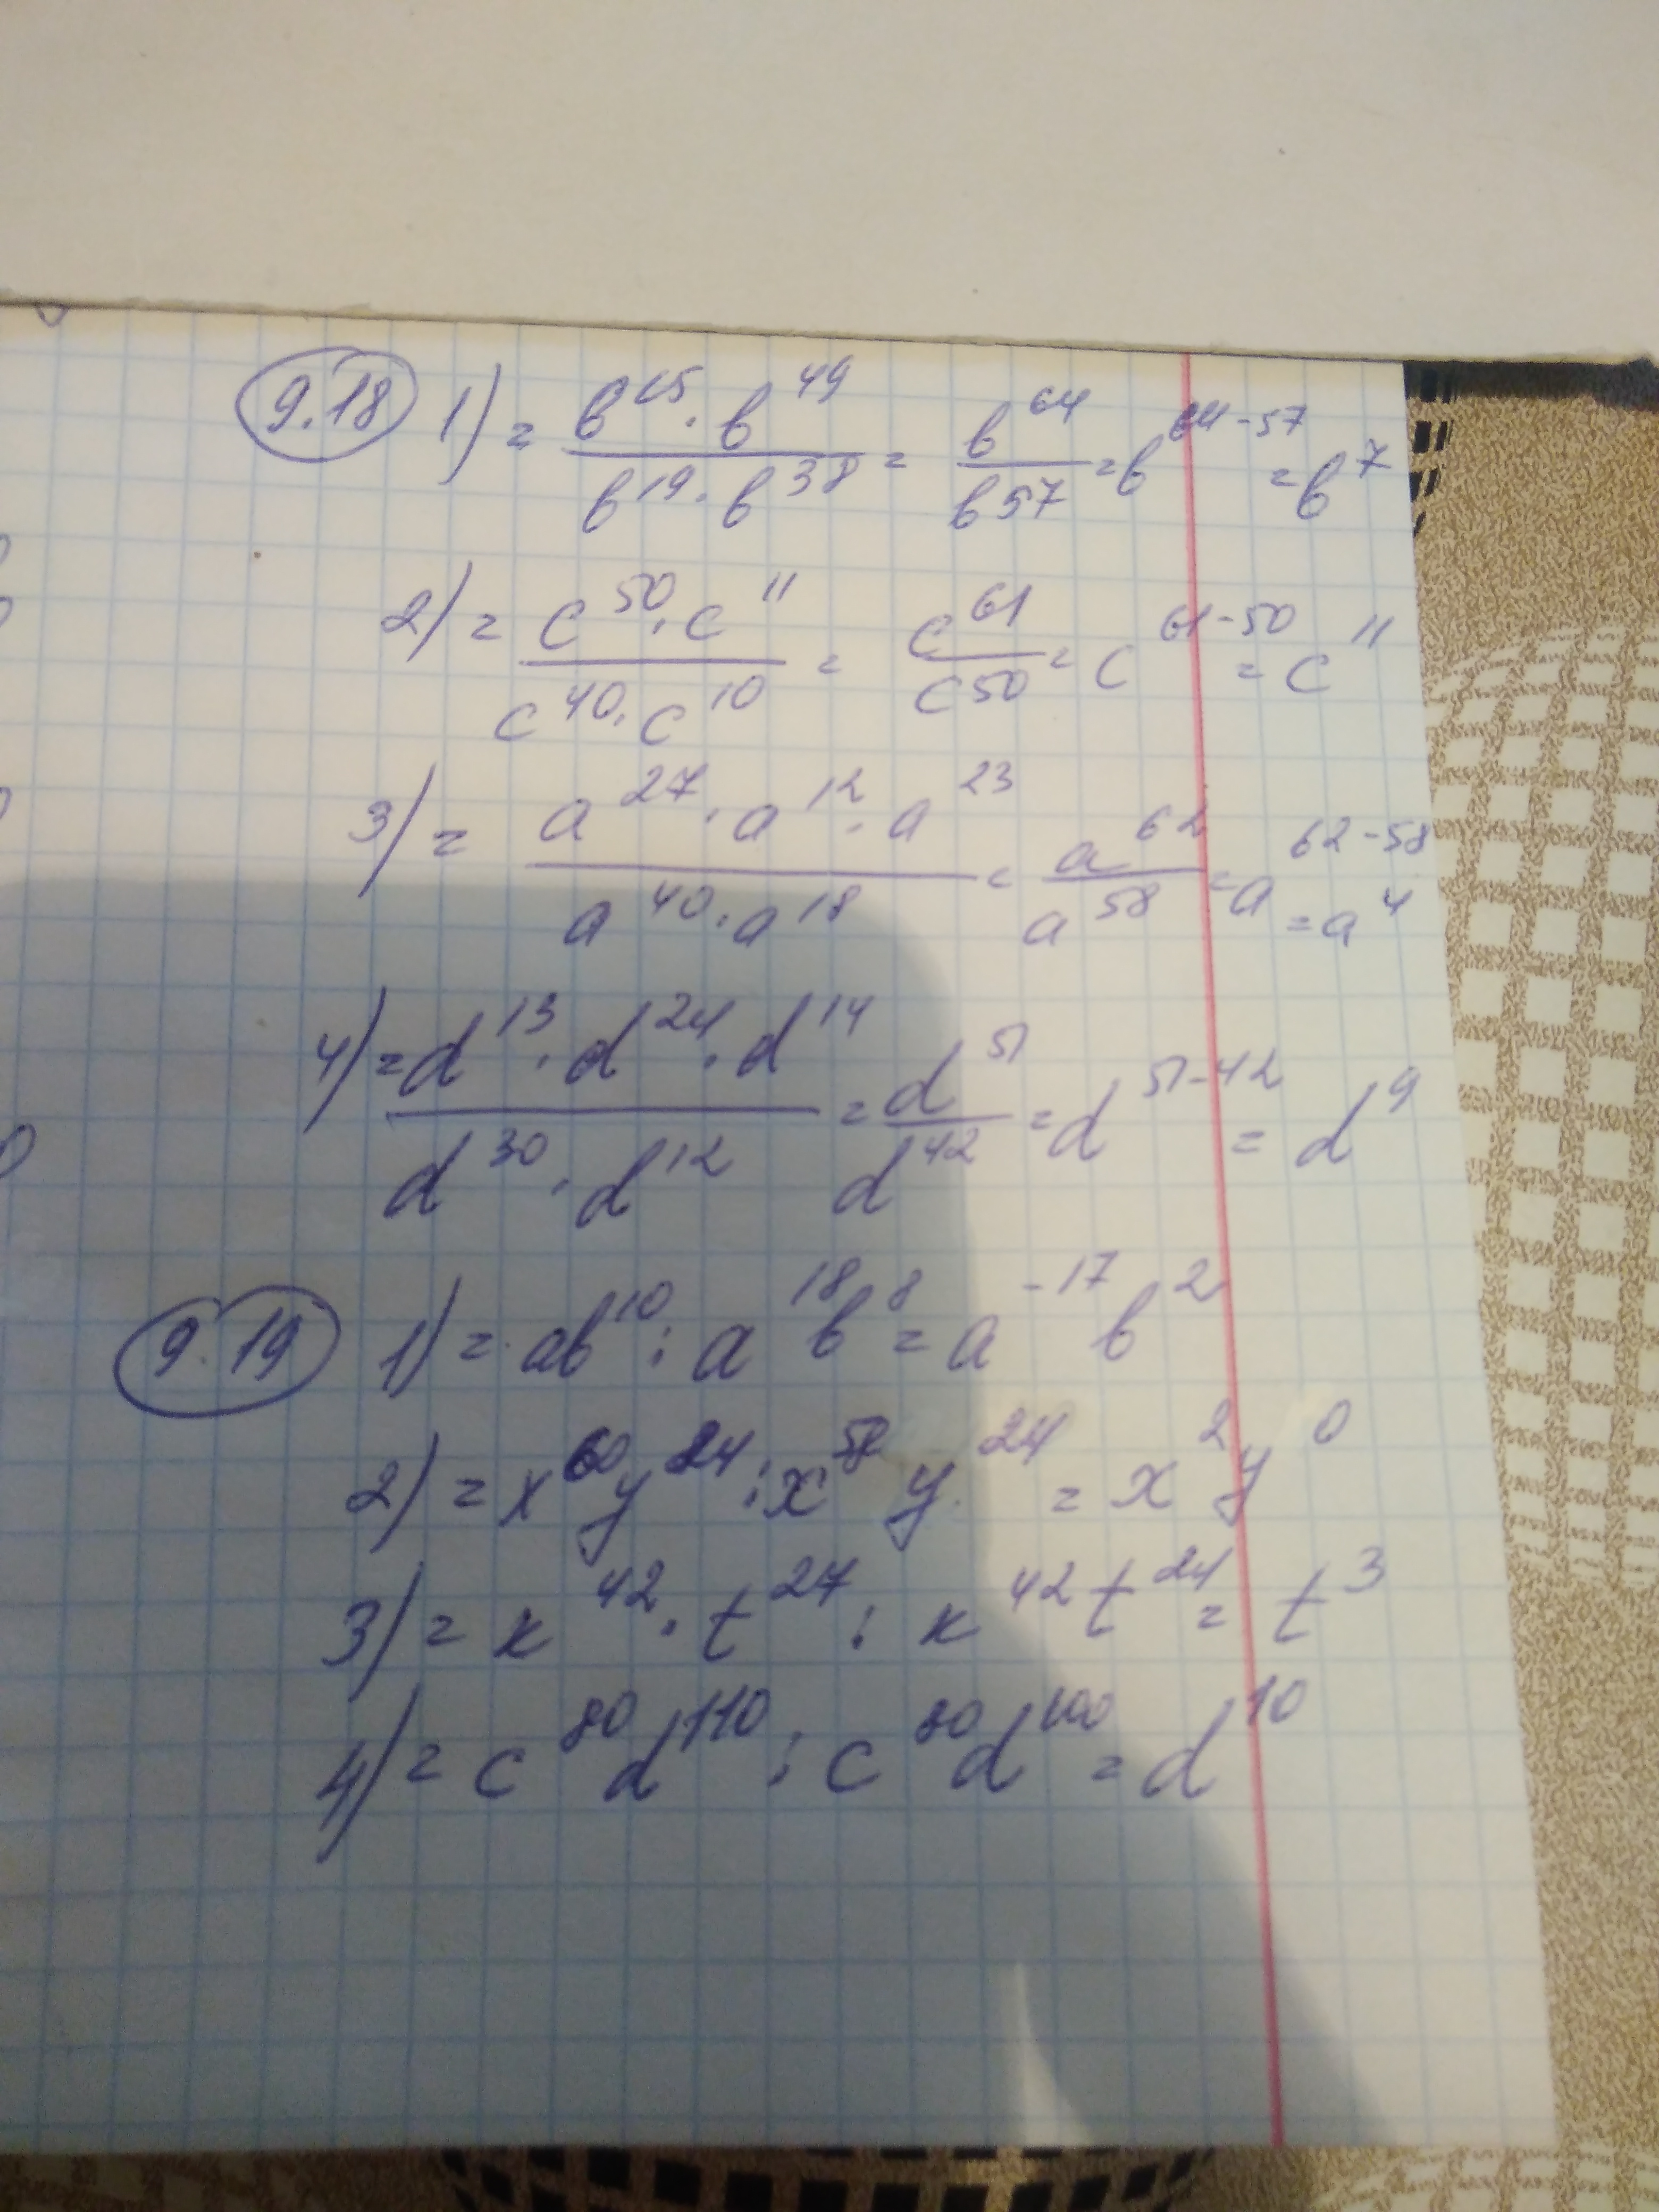 9.18 1) = b¹⁵·b⁴⁹ / b¹⁹·b³⁸ = b⁶⁴ / b⁵⁷ = b⁶⁴⁻⁵⁷ = b⁷
2) = c⁵⁰·c¹¹ / c⁴⁰·c¹⁰ = c⁶¹ / c⁵⁰ = c⁶¹⁻⁵⁰ = c¹¹
3) = a²⁷·a¹²·a²³ / a⁴⁰·a¹⁸ = a⁶² / a⁵⁸ = a⁶²⁻⁵⁸ = a⁴
4) = d¹³·d²⁴·d¹⁴ / d³⁰·d¹² = d⁵¹ / d⁴² = d⁵¹⁻⁴² = d⁹
9.19 1) = ab¹⁰ : a¹⁸b⁸ = a⁻¹⁷b²
2) = x⁶⁰y²⁴ : x⁵⁸y²⁴ = x²y⁰
3) = k⁴²·t²⁷ : k⁴²t²⁴ = t³
4) = c⁸⁰d¹¹⁰ : c⁸⁰d¹⁰⁰ = d¹⁰